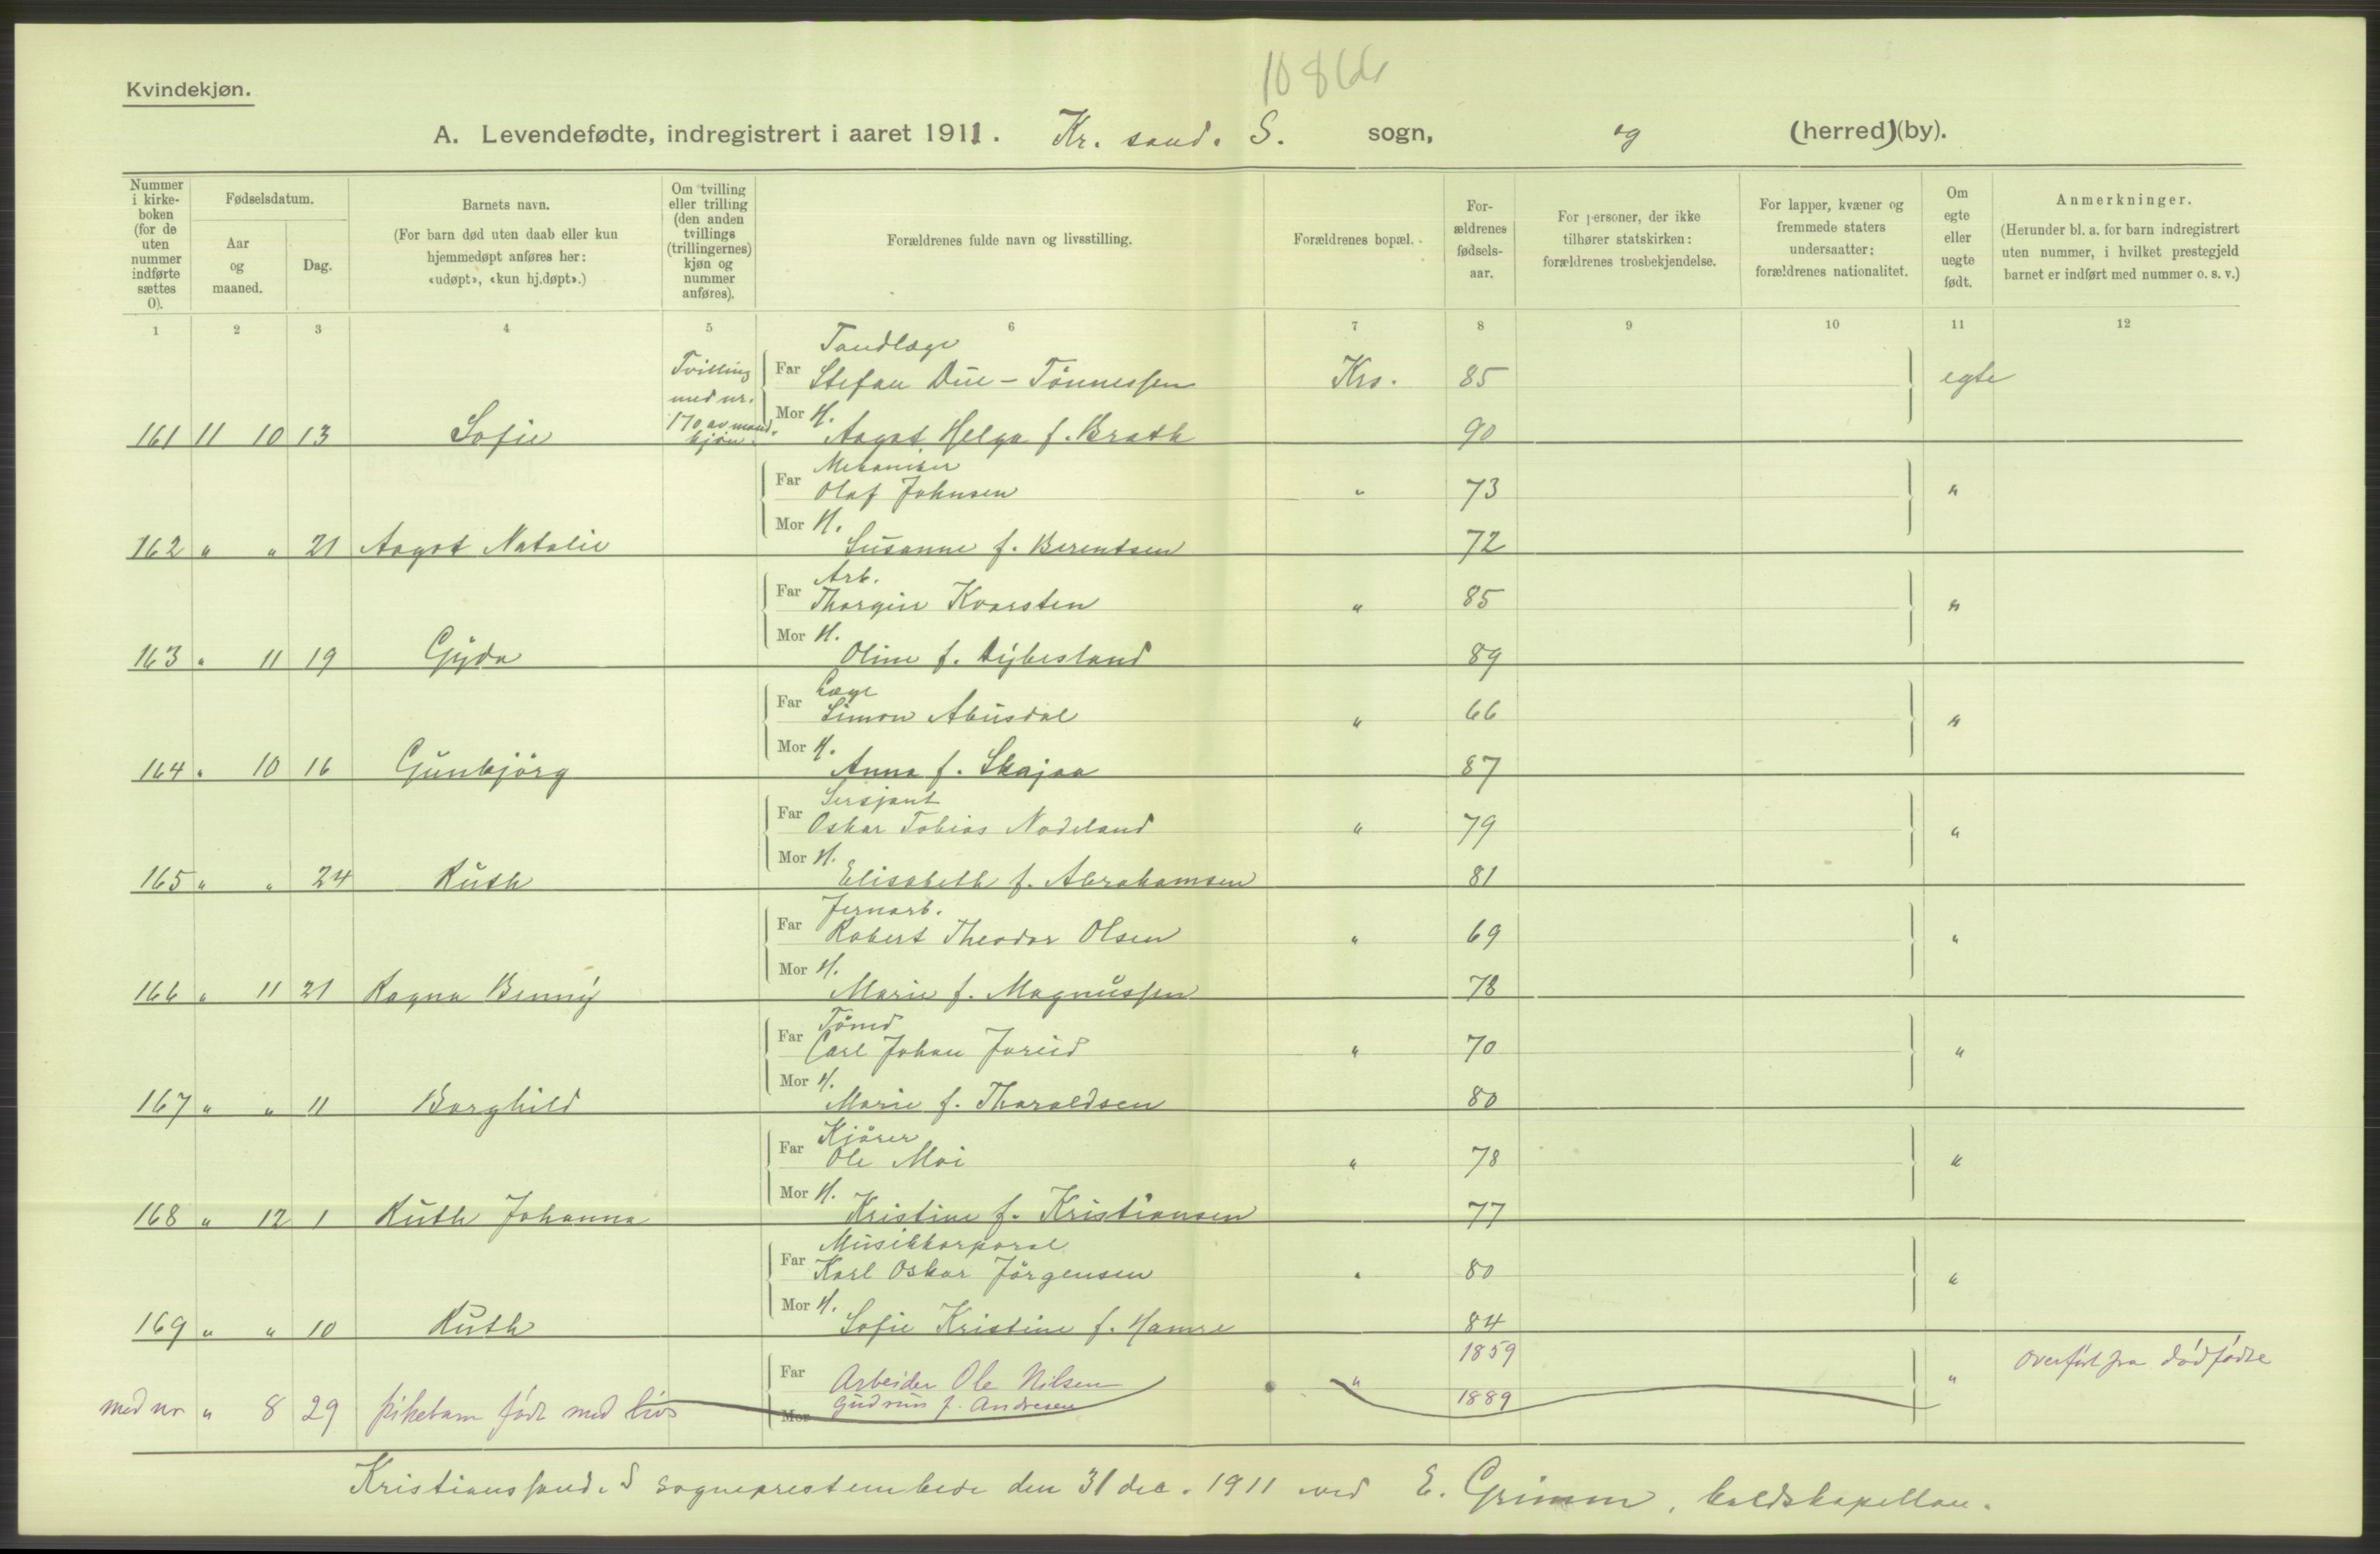 Kvindekjøn.
A. Levendefødte, indregistrert i aaret 1911. Kr. sand. S. sogn, og (herred)(by).
Nummer i kirkeboken (for de uten nummer indførte sættes 0).
Fødselsdatum.
Aar og maaned.
Dag.
Barnets navn.
(For barn død uten daab eller kun hjemmedøpt anføres her: «udøpt», «kun hj.døpt».)
Om tvilling eller trilling (den anden tvillings (trillingernes) kjøn og nummer anføres).
Forældrenes fulde navn og livsstilling.
Forældrenes bopæl.
Forældrenes fødselsaar.
For personer, der ikke tilhører statskirken: forældrenes trosbekjendelse.
For lapper, kvæner og fremmede staters undersaatter: forældrenes nationalitet.
Om egte eller uegte født.
Anmerkninger.
(Herunder bl. a. for barn indregistrert uten nummer, i hvilket prestegjeld barnet er indført med nummer o. s. v.)
1 2 3 4 5 6 7 8 9 10 11 12
Tandlæge
Tvilling med nr. 170 av mand. kjøn.
Far Stefan Due-Tönnessen Krs. 85 egte
161 11 10 13 Sofie Mor H. Aagot Helga f. Brath 90
Mekaniker
Far Olaf Johnsen " 73 "
162 " " 21 Aagot Natalie Mor H. Susanne f. Berentsen 72
Arb.
Far Thorgin Kvarsten " 85 "
163 " 11 19 Gyda Mor H. Oline f. Dybesland 89
Læge
Far Simon Abusdal " 66 "
164 " 10 16 Gunbjörg Mor H. Anna f. Skajaa 87
Sersjant
Far Oskar Tobias Nodeland " 79 "
165 " " 24 Ruth Mor H. Elisabeth f. Abrahamsen 81
Jernarb.
Far Robert Theodor Olsen " 69 "
166 " 11 21 Ragna Benny Mor H. Marie f. Magnussen 78
Tömd
Far Carl Johan Jureid " 70 "
167 " " 11 Borghild Mor H. Marie f. Tharaldsen 80
Kjörer
Far Ole Moi " 78 "
168 " 12 1 Ruth Johanna Mor H. Kristine f. Kristiansen 77
Musikkorporal
Far Karl Oskar Jörgensen " 80 "
169 " " 10 Ruth Mor H. Sofie Kristine f. Hamre 84
Far Arbeider Ole Nilsen " 1859 " Overført fra dødfødte
med nr " 8 29 pikebarn født med livs Mor Gudrun f. Andresen 1889
Kristianssand. S sogneprestembede den 31 dec. 1911 ved E. Grimm, kaldskapellan.